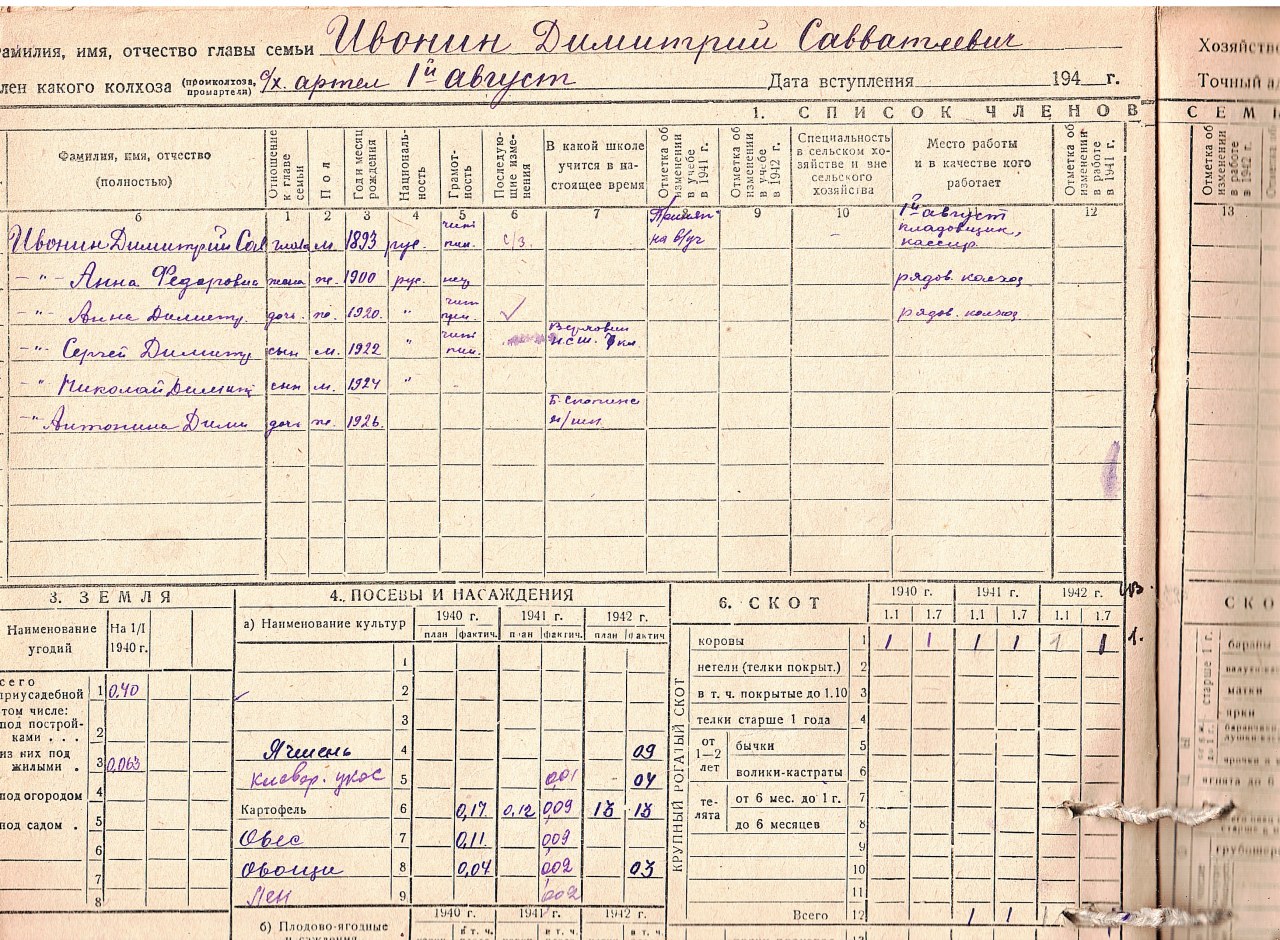 Фамилия, имя, отчество главы семьи Ивонин Димитрий Савватеевич
Член какого колхоза (промколхоза, промартели) с/х. артел 1й август Дата вступления 194 г.
1. СПИСОК ЧЛЕНОВ СЕМ
Хозяйство
Точный ад
Фамилия, имя, отчество (полностью) Отношение к главе семьи Пол Год и месяц рождения Националь-ность Грамот-ность Последую-щие изме-нения В какой школе учится в на-стоящее время Отметка об изменении в учебе в 1941 г. Отметка об изменении в учебе в 1942 г. Специальность в сельском хо-зяйстве и вне сельского хозяйства Место работы и в качестве кого работает Отметка об изменении в работе в 1941 г. Отметка об изменении в работе в 1942 г.
б 1 2 3 4 5 6 7 9 10 11 12 13
Ивонин Димитрий Сав глава м. 1893 рус. чит пис. с/з. на в/уч – 1й август кладовщик, кассир.
–"– Анна Федоровна жена ж. 1900 рус. негр рядов. колхоз
–"– Анна Димитр. дочь ж. 1920. " чит ✓ рядов. колхоз
–"– Сергей Димитр сын м. 1922 " чит пис. н.с.ш. 7 кл.
–"– Николай Димит сын м. 1924 "
–"– Антонина Дими дочь ж. 1926. н/шк.
3. ЗЕМЛЯ
Наименование угодий На 1/I 1940 г.
Всего приусадебной 1 0,40
том числе: под построй-ками . . . 2
из них под жилыми . 3 0,063
под огородом 4
под садом . 5
6
7
8
4. ПОСЕВЫ И НАСАЖДЕНИЯ
а) Наименование культур 1940 г. 1941 г. 1942 г.
план фактич. план фактич. план фактич
1
2
3
Ячмень 4 09
Клевер. укос 5 001 04
Картофель 6 0,17 0,12 009 18 18
Овес 7 0,11. 009
Овощи 8 0,04 002 03
Лен 9 002
б) Плодово-ягодные 1940 г. 1941 г. 1942 г.
в т. ч. в т. ч. в т. ч.
6. СКОТ 1940 г. 1941 г. 1942 г.
1.1 1.7 1.1 1.7 1.1 1.7
КРУПНЫЙ РОГАТЫЙ СКОТ
коровы 1 1 1 1 1 1 1 1.
нетели (телки покрыт.) 2
в т. ч. покрытые до 1.10 3
телки старше 1 года 4
от 1—2 лет бычки 5
волики-кастраты 6
те-лята от 6 мес. до 1 г. 7
до 6 месяцев 8
9
10
11
Всего 12 1 1
СКО
старше 1 г.
бараны
матки
ярки